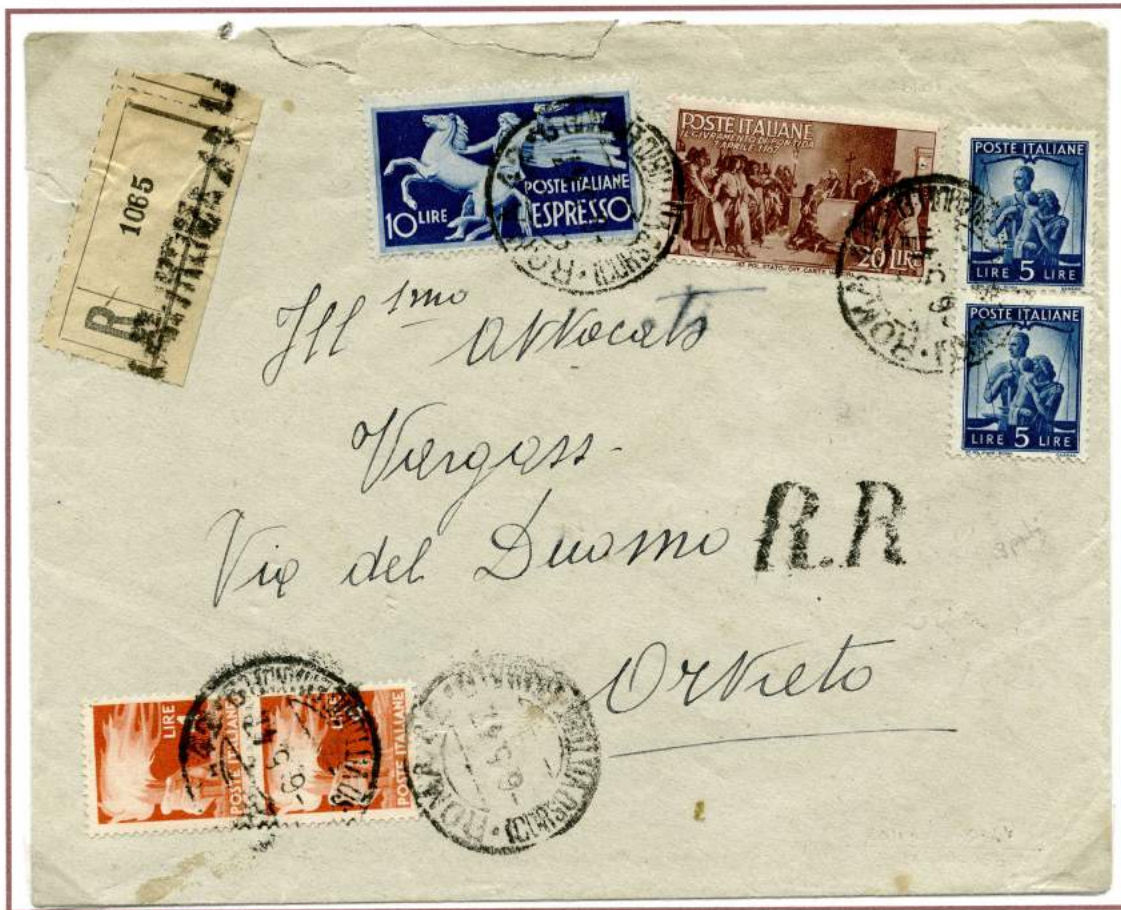 R 1065
10 LIRE POSTE ITALIANE
ESPRESSO
POSTE ITALIANE
IL GIVRAMENTO DI PONTIDA
7 APRILE 1167
20 LIRE
POSTE ITALIANE
LIRE 5 LIRE
POSTE ITALIANE
LIRE 5 LIRE
Ill 1mo Avvocato
Vargass
Via del Duomo
R.R
Orvieto
LIRE
POSTE ITALIANE
LIRE
POSTE ITALIANE
ROMA
-6.5.47